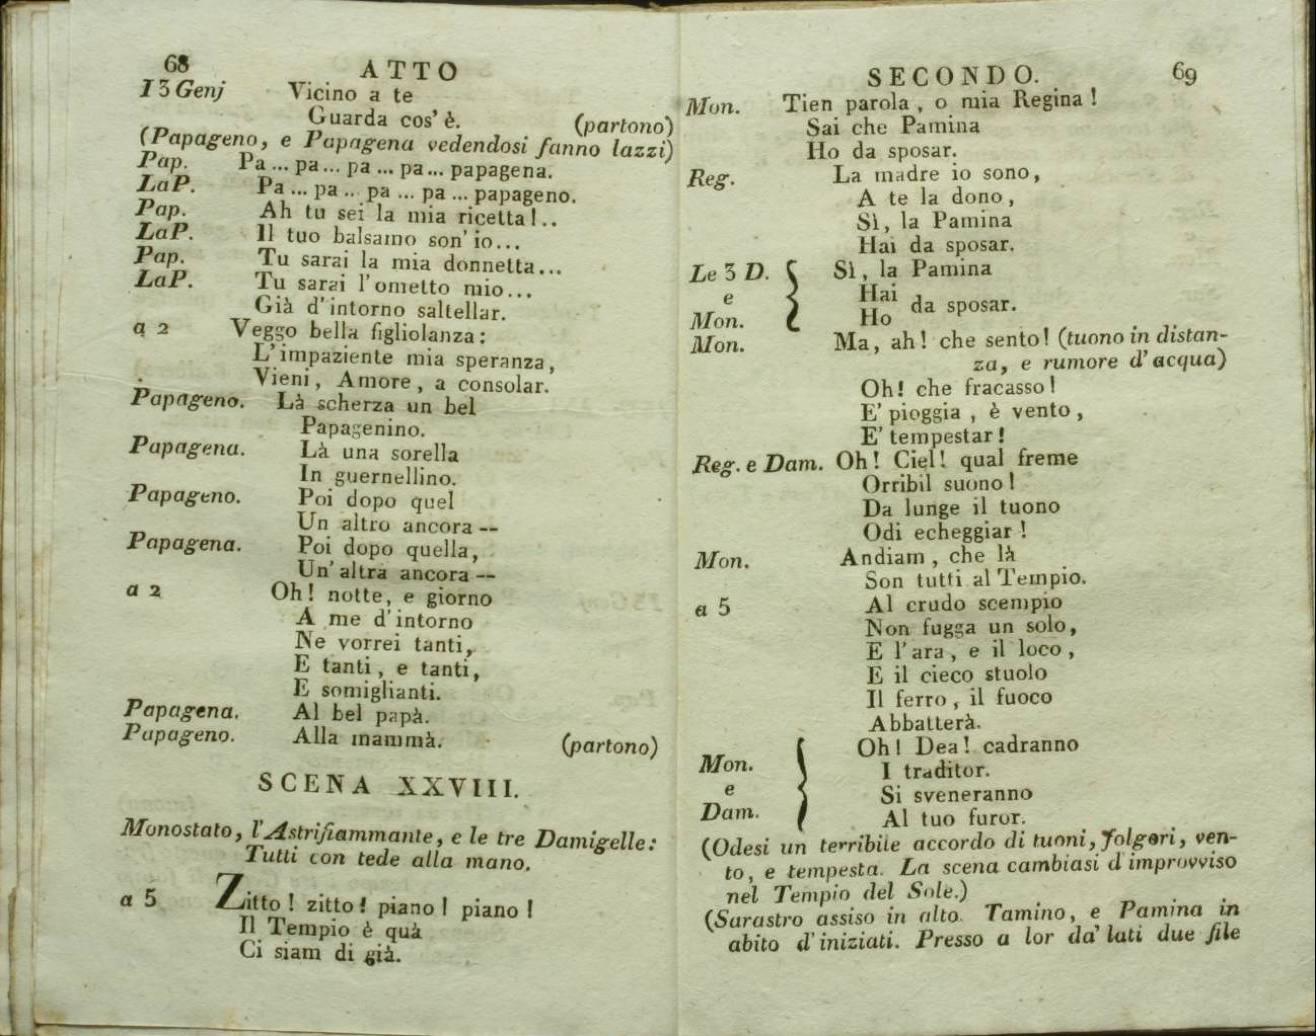 68
ATTO
I 3 Genj Vicino a te
Guarda cos' è. (partono)
(Papageno, e Papagena vedendosi fanno lazzi)
Pap. Pa ... pa ... pa ... pa ... papagena.
La P. Pa ... pa .. pa ... pa ... papageno.
Pap. Ah tu sei la mia ricetta!..
La P. Il tuo balsamo son' io...
Pap. Tu sarai la mia donnetta...
La P. Tu sarai l'ometto mio...
Già d'intorno saltellar.
a 2 Veggo bella figliolanza:
L'impaziente mia speranza,
Vieni, Amore, a consolar.
Papageno. Là scherza un bel
Papagenino.
Papagena. Là una sorella
In guernellino.
Papageno. Poi dopo quel
Un altro ancora --
Papagena. Poi dopo quella,
Un' altra ancora --
a 2 Oh! notte, e giorno
A me d'intorno
Ne vorrei tanti,
E tanti, e tanti,
E somiglianti.
Papagena. Al bel papà.
Papageno. Alla mammà. (partono)
SCENA XXVIII.
Monostato, l'Astrifiammante, e le tre Damigelle:
Tutti con tede alla mano.
a 5 Zitto! zitto! piano! piano!
Il Tempio è quà
Ci siam di già.
SECONDO.
69
Mon. Tien parola, o mia Regina!
Sai che Pamina
Ho da sposar.
Reg. La madre io sono,
A te la dono,
Sì, la Pamina
Hai da sposar.
Le 3 D. Sì, la Pamina
e Hai da sposar.
Mon. Ho
Mon. Ma, ah! che sento! (tuono in distan-
za, e rumore d'acqua)
Oh! che fracasso!
E' pioggia, è vento,
E' tempestar!
Reg. e Dam. Oh! Ciel! qual freme
Orribil suono!
Da lunge il tuono
Odi echeggiar!
Mon. Andiam, che là
Son tutti al Tempio.
a 5 Al crudo scempio
Non fugga un solo,
E l'ara, e il loco,
E il cieco stuolo
Il ferro, il fuoco
Abbatterà.
Oh! Dea! cadranno
Mon. I traditor.
e Si sveneranno
Dam. Al tuo furor.
(Odesi un terribile accordo di tuoni, folgori, ven-
to, e tempesta. La scena cambiasi d improvviso
nel Tempio del Sole.)
(Sarastro assiso in alto. Tamino, e Pamina in
abito d'iniziati. Presso a lor da' lati due file